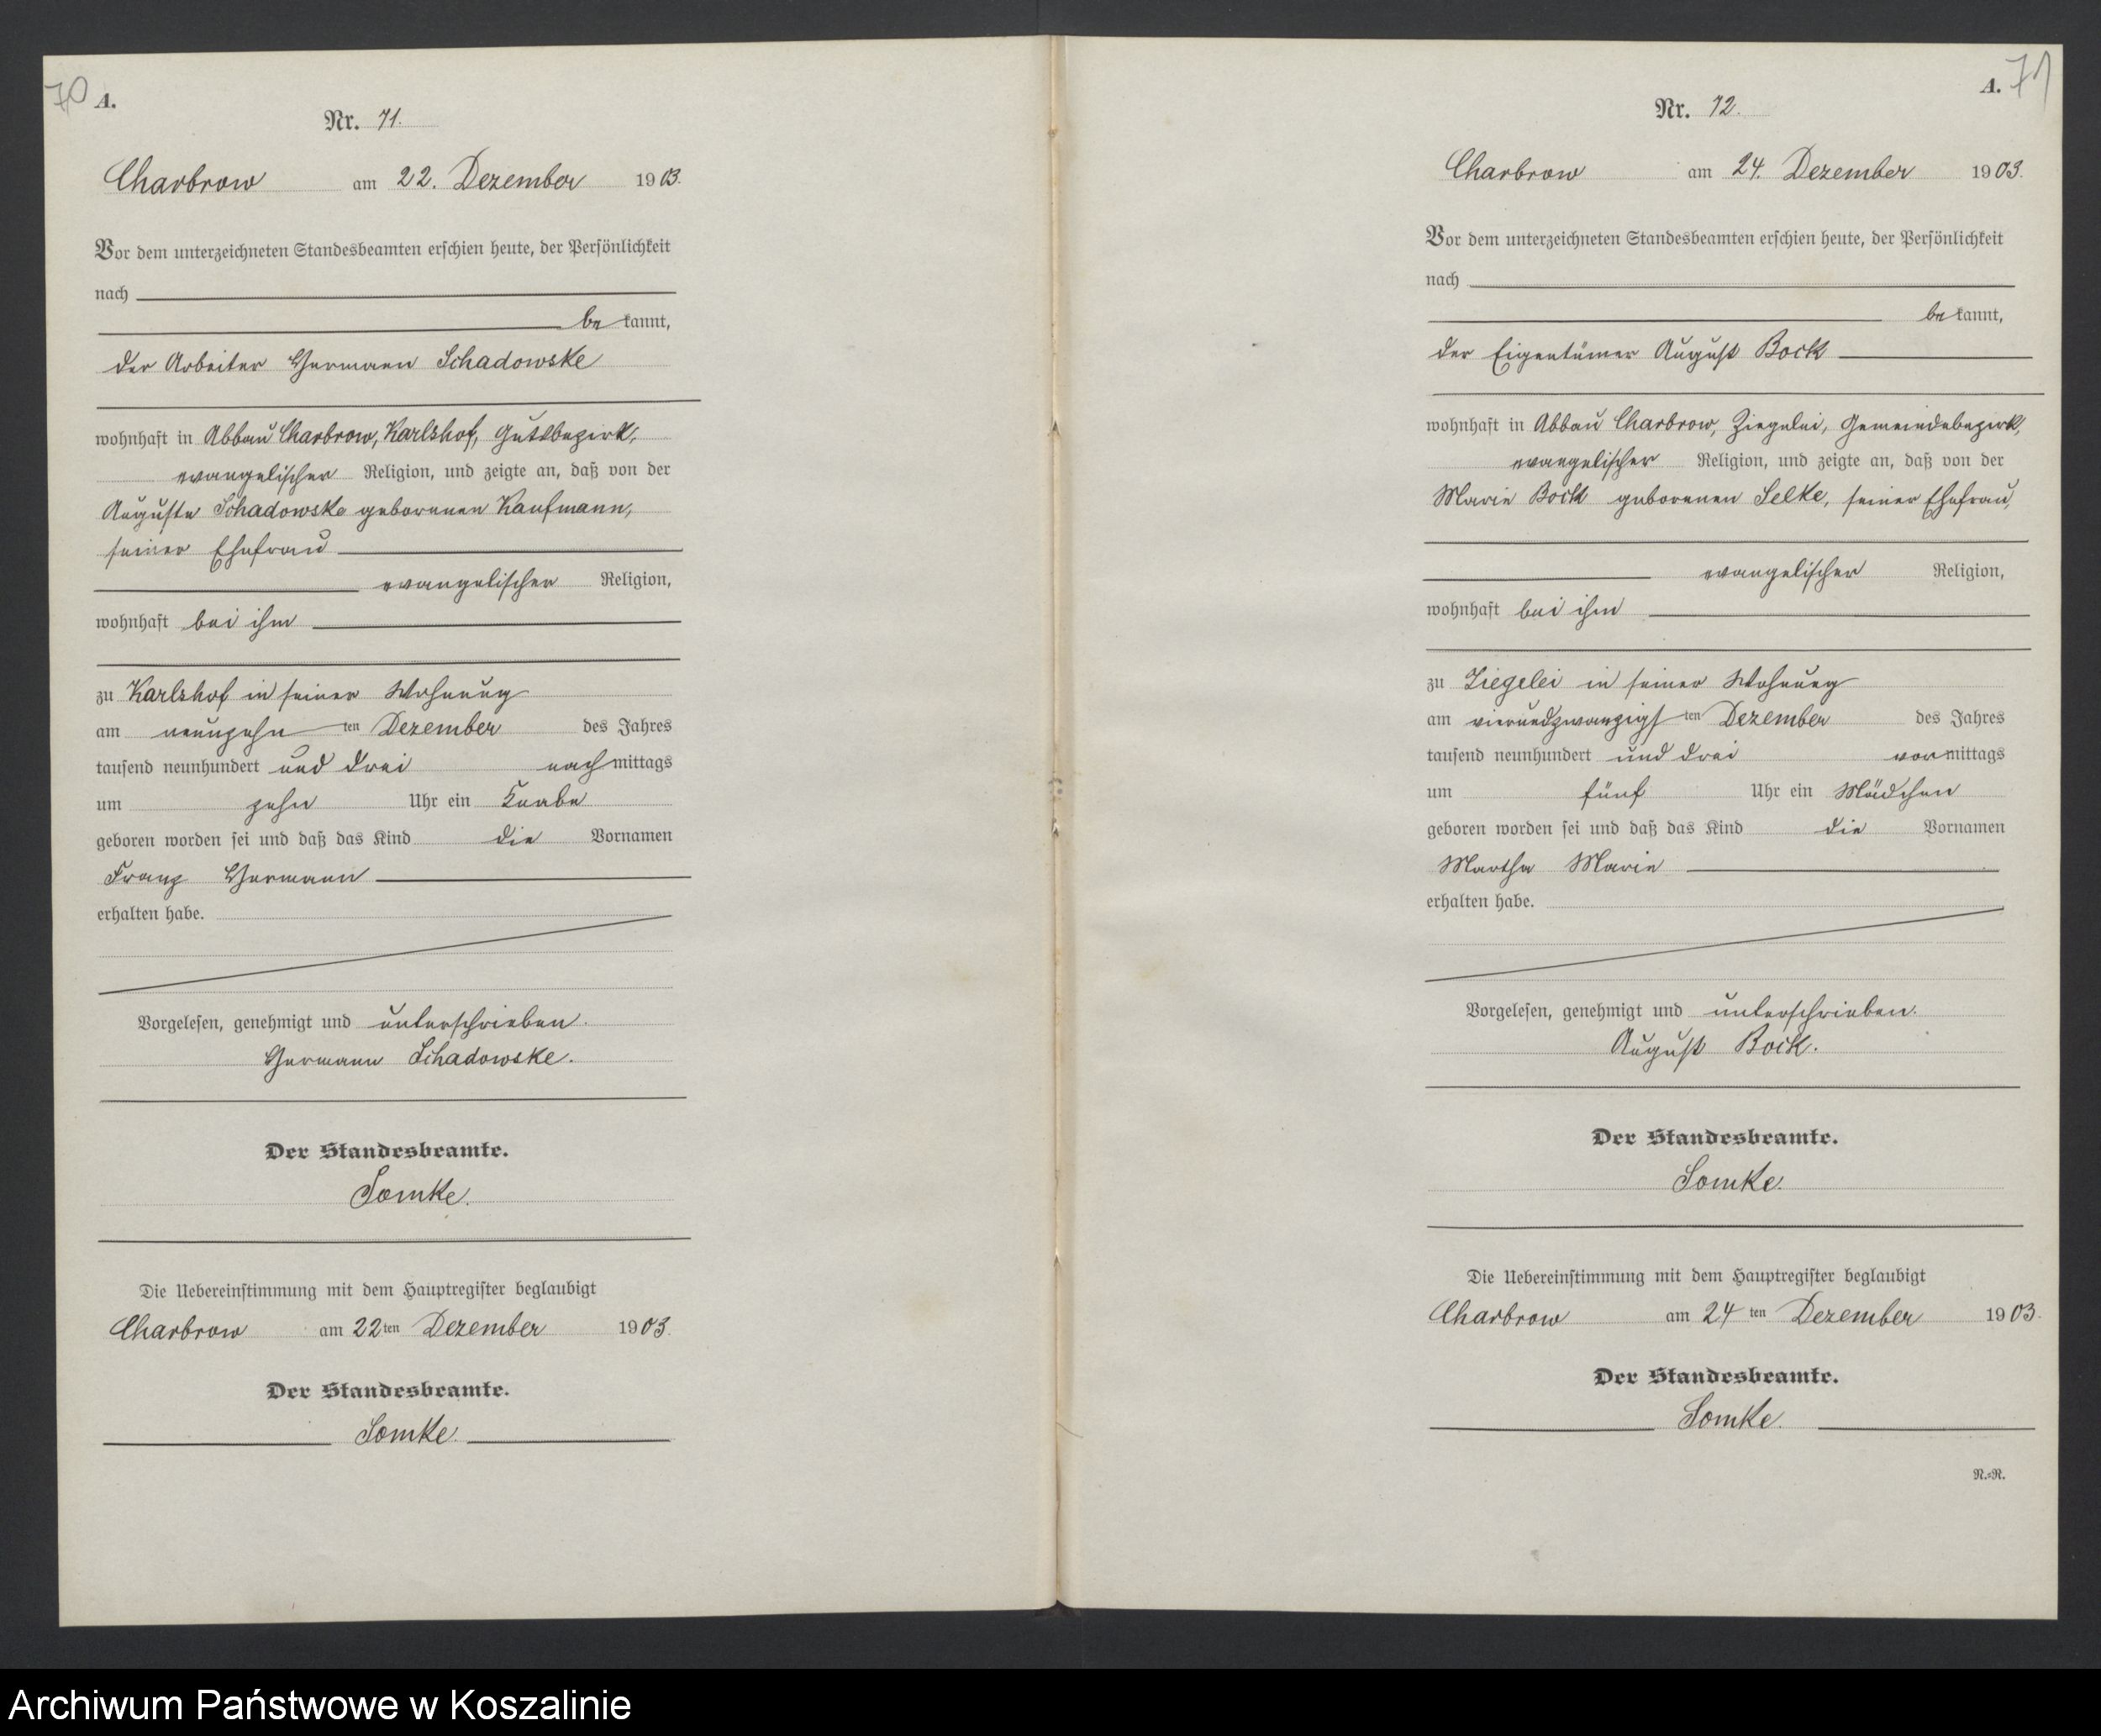 70
A.
Nr. 71.
Charbrow am 22. Dezember 1903.
Vor dem unterzeichneten Standesbeamten erschien heute, der Persönlichkeit
nach
bekannt,
der Arbeiter Hermann Schadowske
wohnhaft in Abbau Charbrow, Karlshof, Gutsbezirk,
evangelischer Religion, und zeigte an, daß von der
Auguste Schadowske geborenen Kaufmann,
seiner Ehefrau
evangelischer Religion,
wohnhaft bei ihm
zu Karlshof in seiner Wohnung
am neunzehnten Dezember des Jahres
tausend neunhundert und drei nachmittags
um zehn Uhr ein Knabe
geboren worden sei und daß das Kind die Vornamen
Franz Hermann
erhalten habe.
Vorgelesen, genehmigt und unterschrieben.
Hermann Schadowske.
Der Standesbeamte.
Somke.
Die Uebereinstimmung mit dem Hauptregister beglaubigt
Charbrow am 22ten Dezember 1903.
Der Standesbeamte.
Somke.
A. 71
Nr. 72.
Charbrow am 24. Dezember 1903.
Vor dem unterzeichneten Standesbeamten erschien heute, der Persönlichkeit
nach
bekannt,
der Eigentümer August Bock
wohnhaft in Abbau Charbrow, Ziegelei, Gemeindebezirk,
evangelischer Religion, und zeigte an, daß von der
Marie Bock geborenen Selke, seiner Ehefrau,
evangelischer Religion,
wohnhaft bei ihm
zu Ziegelei in seiner Wohnung
am vierundzwanzigsten Dezember des Jahres
tausend neunhundert und drei vormittags
um fünf Uhr ein Mädchen
geboren worden sei und daß das Kind die Vornamen
Martha Marie
erhalten habe.
Vorgelesen, genehmigt und unterschrieben.
August Bock.
Der Standesbeamte.
Somke.
Die Uebereinstimmung mit dem Hauptregister beglaubigt
Charbrow am 24ten Dezember 1903.
Der Standesbeamte.
Somke.
N.=R.
Archiwum Państwowe w Koszalinie